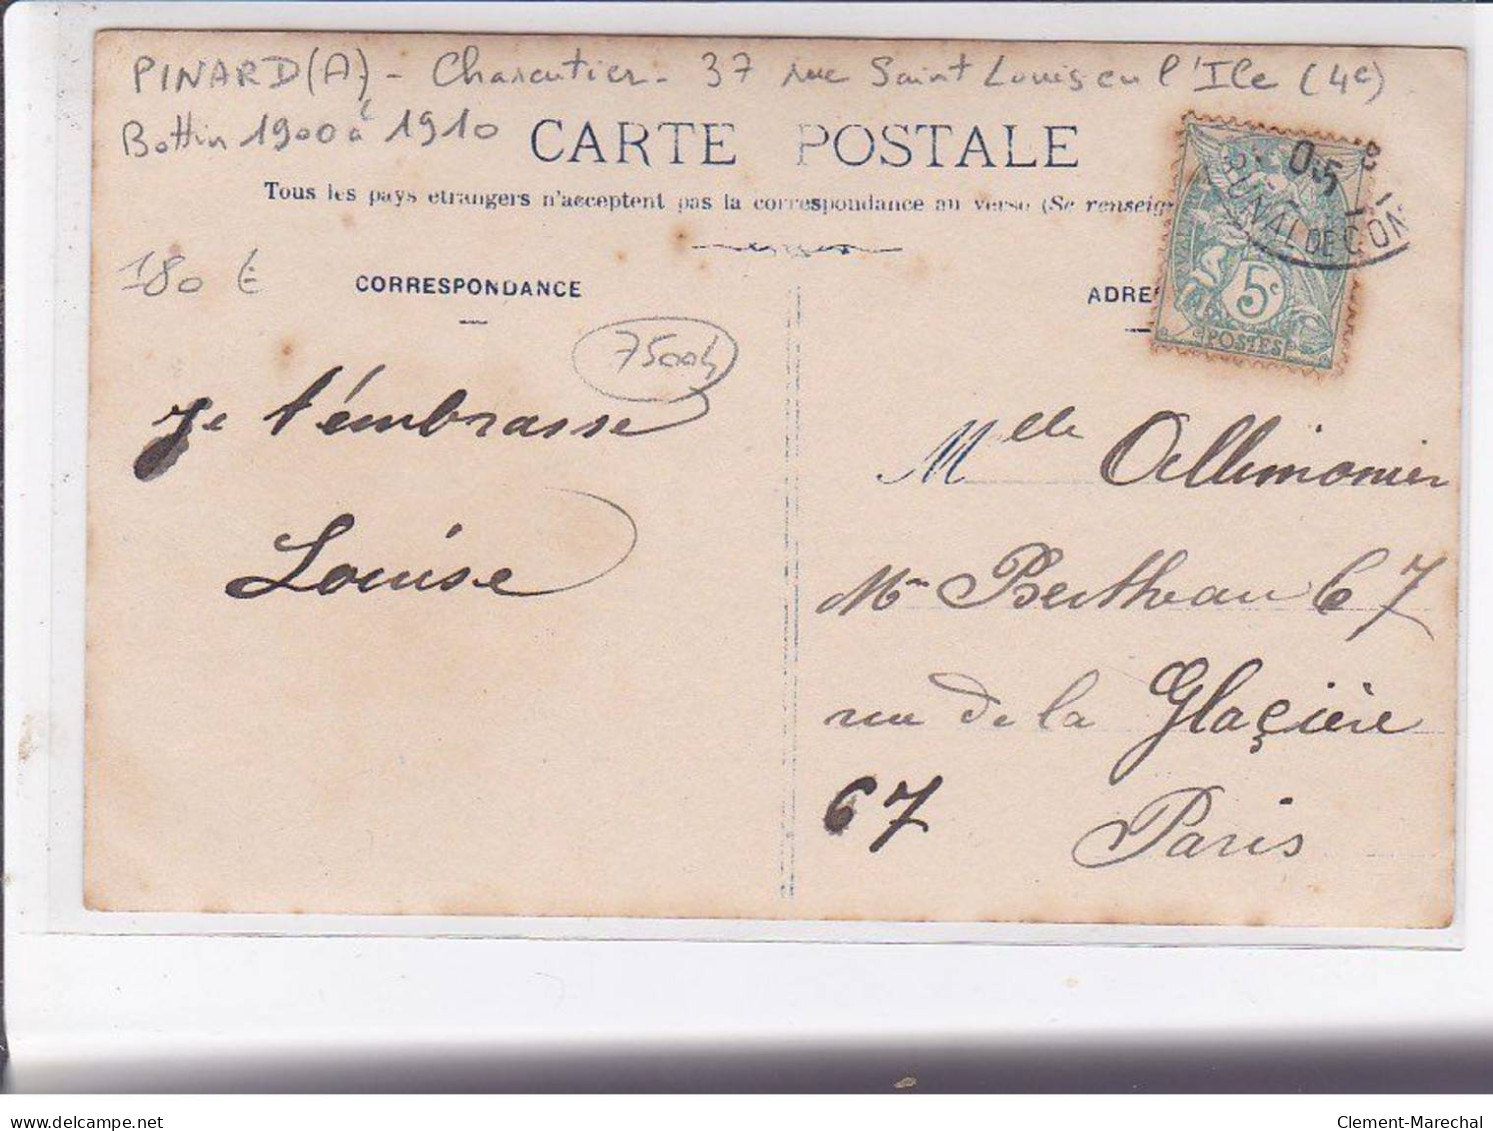 PINARD (A) - Charcutier - 37 rue Saint Louis en l'Ile (4e)
Bottin 1900 à 1910
CARTE POSTALE
Tous les pays étrangers n'acceptent pas la correspondance au verso (Se renseig
180 €
CORRESPONDANCE
ADRE
75004
Je t'émbrasse
Louise
5c
POSTES
05
BUNAL DE COM
Mlle Allimonier
Mn Bertheau 67
rue de la Glaçière
67 Paris
Clement-Marechal